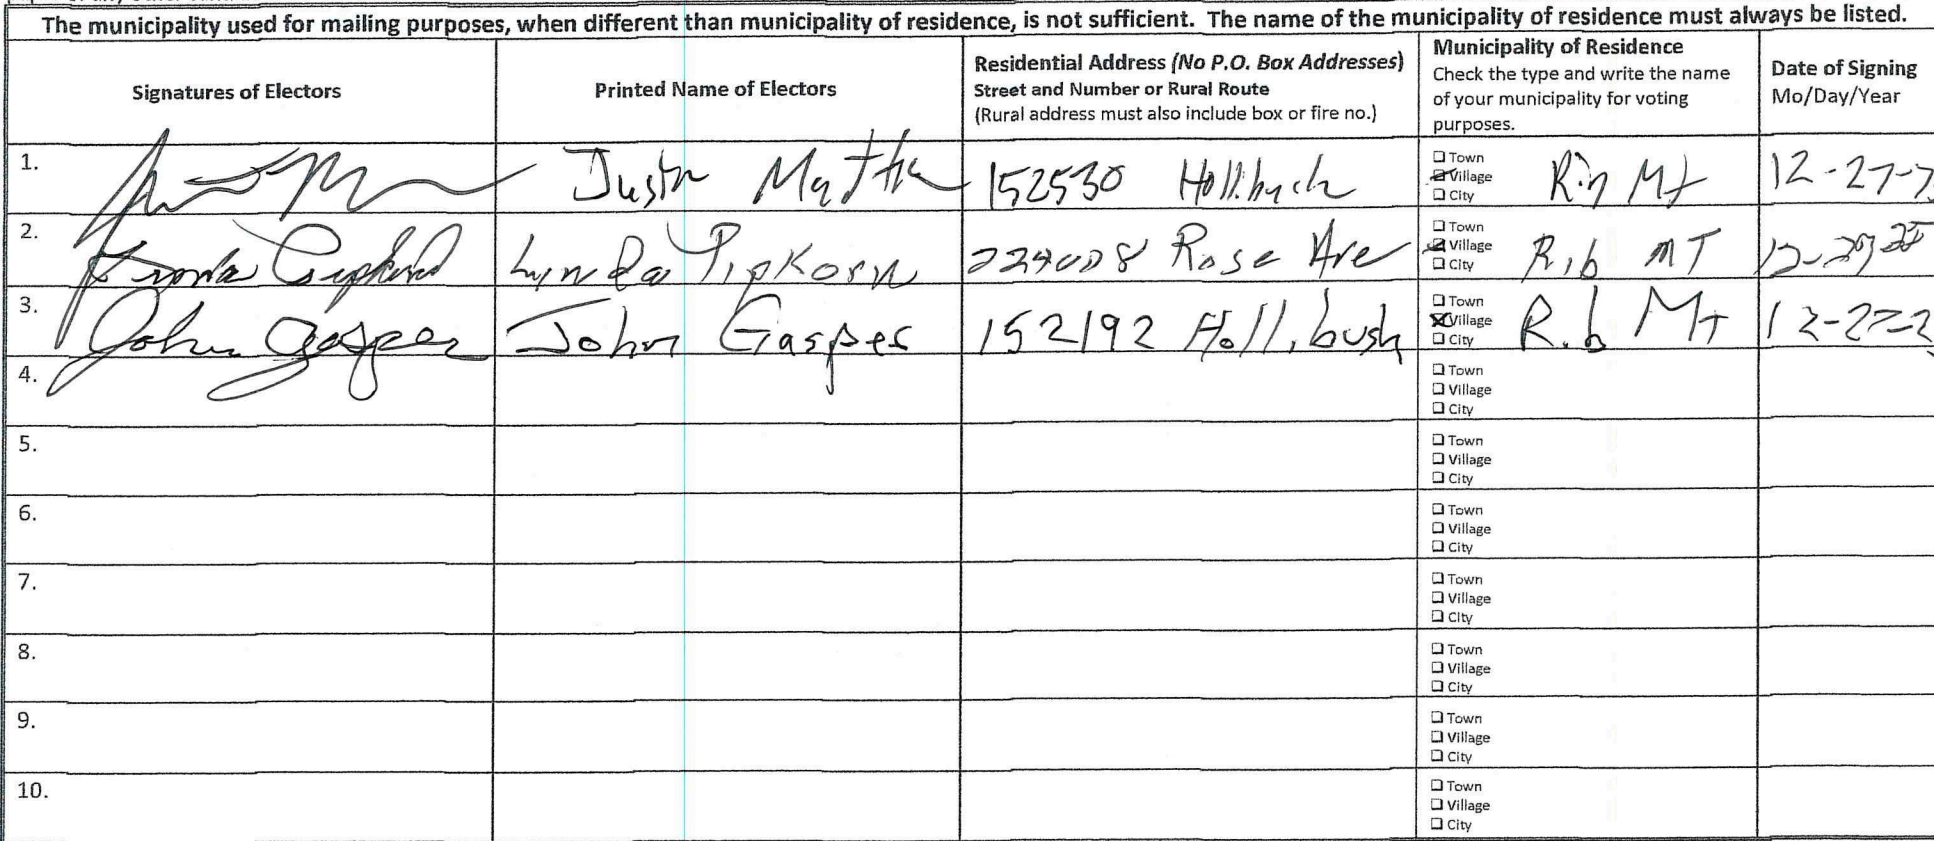 The municipality used for mailing purposes, when different than municipality of residence, is not sufficient. The name of the municipality of residence must always be listed.
Signatures of Electors
Printed Name of Electors
Residential Address (No P.O. Box Addresses)
Street and Number or Rural Route
(Rural address must also include box or fire no.)
Municipality of Residence
Check the type and write the name
of your municipality for voting
purposes.
Date of Signing
Mo/Day/Year
1. Justin 152530 ☐ Town
Village Mt 12-27-
☐ City
2. Lynda Pipkorn Rose Ave ☐ Town
Village Rib MT
☐ City
3. John Gasper John Gasper 152192 Hollibush ☐ Town
☒ Village Rib MT 12-27-2
☐ City
4. ☐ Town
☐ Village
☐ City
5. ☐ Town
☐ Village
☐ City
6. ☐ Town
☐ Village
☐ City
7. ☐ Town
☐ Village
☐ City
8. ☐ Town
☐ Village
☐ City
9. ☐ Town
☐ Village
☐ City
10. ☐ Town
☐ Village
☐ City